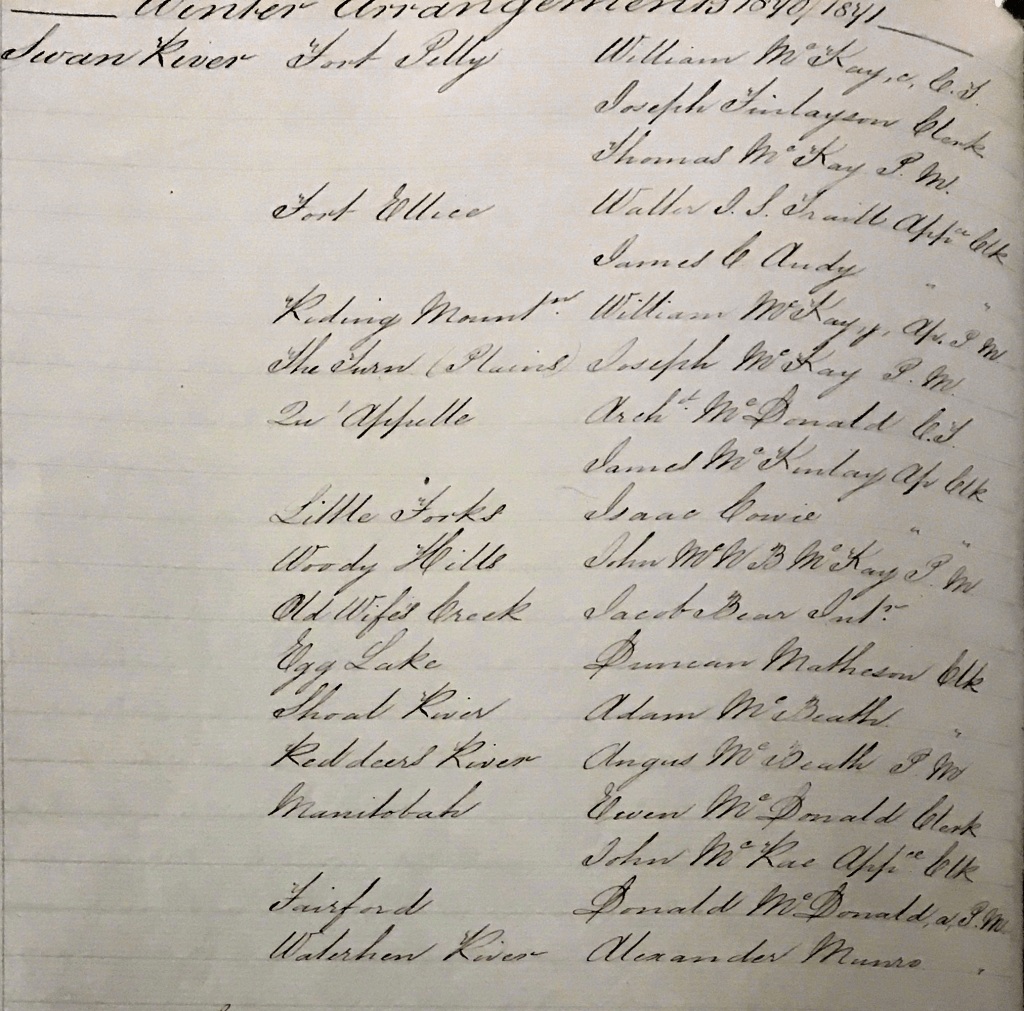 Winter Arrangements 1840/1841
Swan River Fort Pelly William Mc Kay, c, C.T.
Joseph Finlayson Clerk
Thomas Mc Kay P. M.
Fort Ellice Walter J. S. Traill Appce Clk
James C Audy " "
Riding Mountn. William McKay, j, Ap. P M
The Turn (Plains) Joseph Mc Kay P. M.
Qu'Appelle Archd. Mc Donald C.T.
James Mc Kinlay Ap Clk
Little Forks Isaac Cowie " "
Woody Hills John Mc N B Mc Kay P. M
Old Wifes Creek Jacob Bear Intr.
Egg Lake Duncan Matheson Clk
Shoal River Adam Mc Beath "
Red deers River Angus Mc Beath P. M
Manitobah Ewen Mc Donald Clerk
John Mc Rae Appce Clk
Fairford Donald Mc Donald, a, P. M.
Waterhen River Alexander Munro "